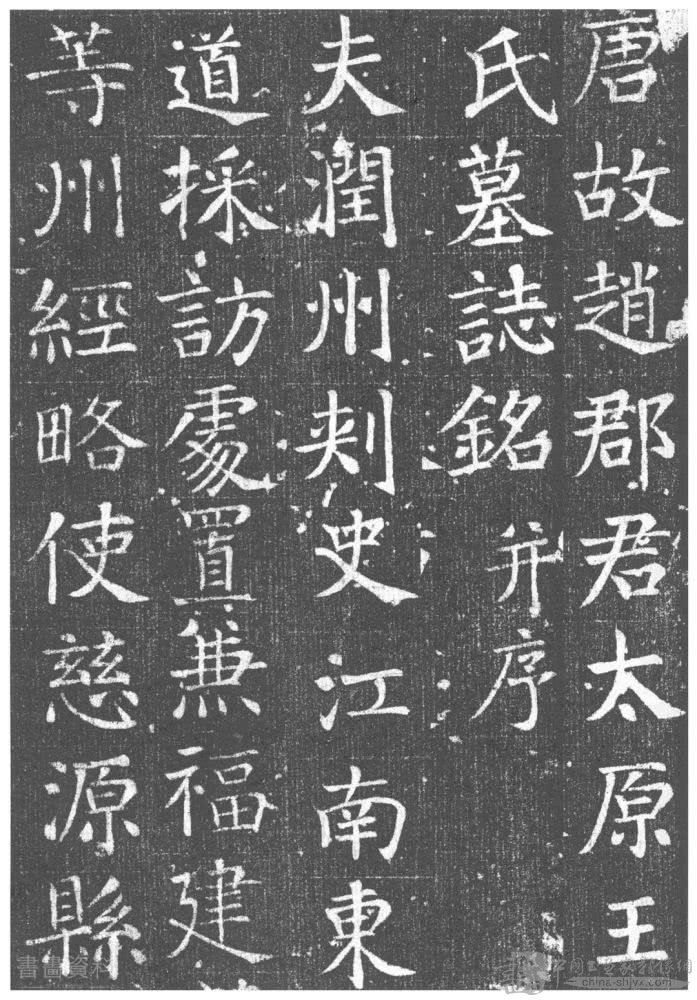 唐故趙郡君太原王
氏墓誌銘 并序
夫潤州刺史江南東
道採訪處置兼福建
等州經略使慈源縣
書畫資料
china-shjyx.com